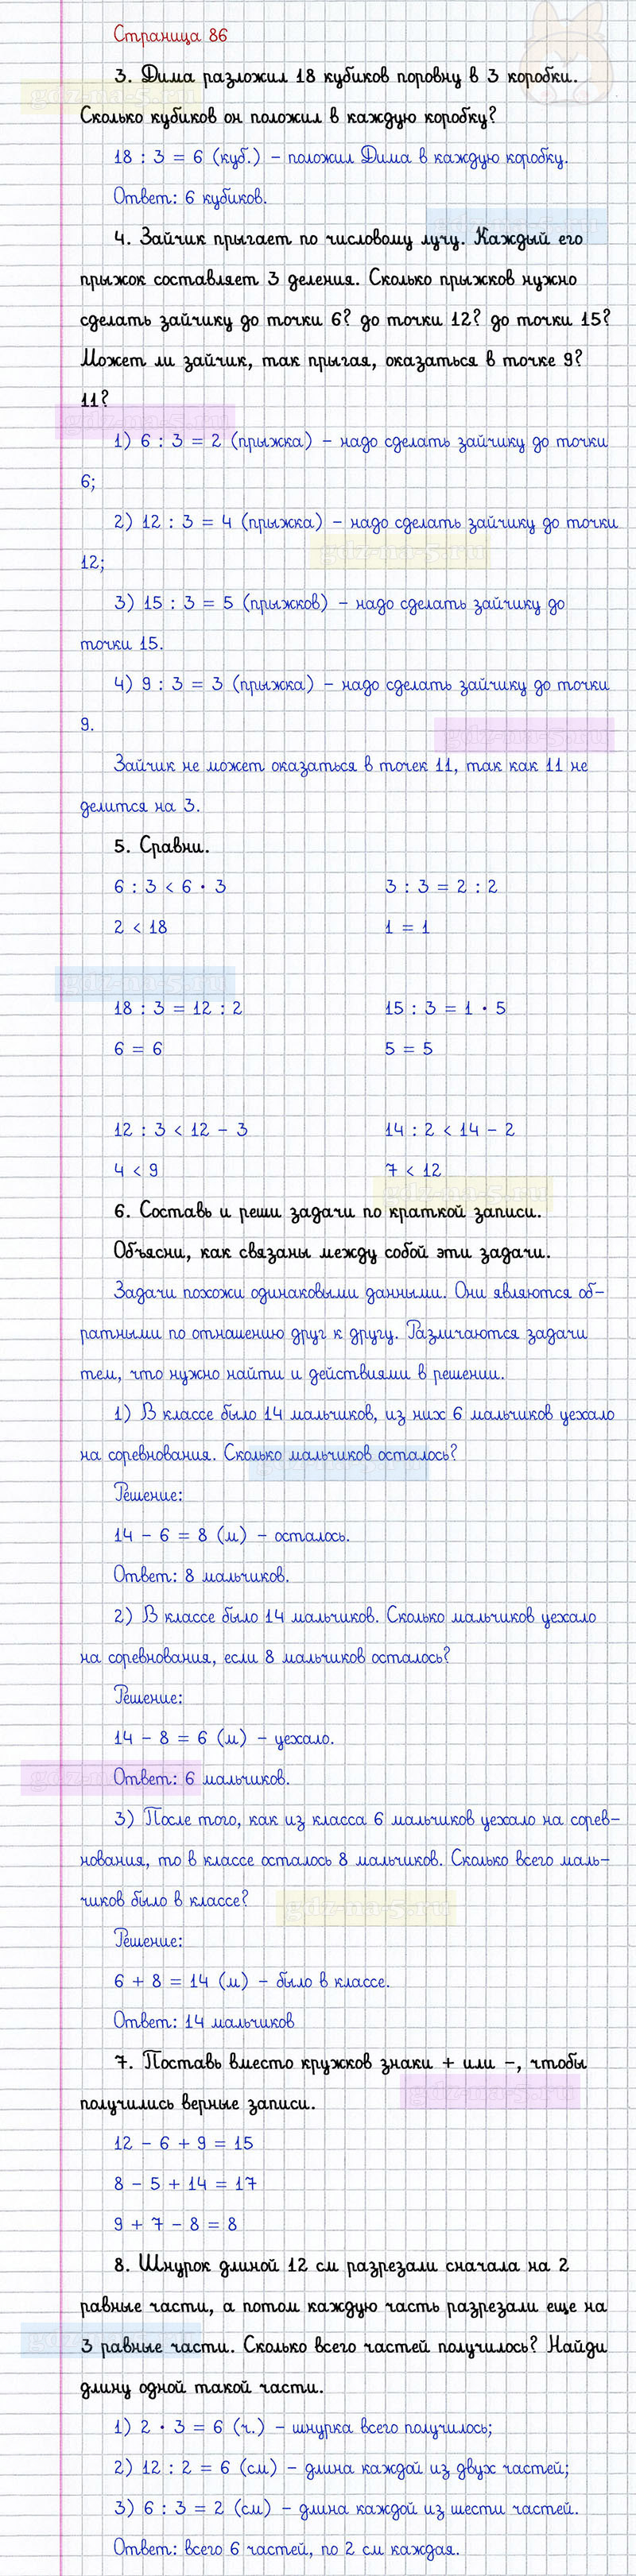 Страница 86
3. Дима разложил 18 кубиков поровну в 3 коробки.
gdz-na-5.ru
Сколько кубиков он положил в каждую коробку?
18 : 3 = 6 (куб.) – положил Дима в каждую коробку.
Ответ: 6 кубиков.
gdz-na-5.ru
4. Зайчик прыгает по числовому лучу. Каждый его
прыжок составляет 3 деления. Сколько прыжков нужно
сделать зайчику до точки 6? до точки 12? до точки 15?
Может ли зайчик, так прыгая, оказаться в точке 9?
11?
gdz-na-5.ru
1) 6 : 3 = 2 (прыжка) – надо сделать зайчику до точки
6;
2) 12 : 3 = 4 (прыжка) – надо сделать зайчику до точки
gdz-na-5.ru
12;
3) 15 : 3 = 5 (прыжков) – надо сделать зайчику до
точки 15.
4) 9 : 3 = 3 (прыжка) – надо сделать зайчику до точки
9.
gdz-na-5.ru
Зайчик не может оказаться в точек 11, так как 11 не
делится на 3.
5. Сравни.
6 : 3 < 6 · 3 3 : 3 = 2 : 2
2 < 18 1 = 1
gdz-na-5.ru
18 : 3 = 12 : 2 15 : 3 = 1 · 5
6 = 6 5 = 5
12 : 3 < 12 – 3 14 : 2 < 14 – 2
4 < 9 7 < 12
gdz-na-5.ru
6. Составь и реши задачи по краткой записи.
Объясни, как связаны между собой эти задачи.
Задачи похожи одинаковыми данными. Они являются об-
ратными по отношению друг к другу. Различаются задачи
тем, что нужно найти и действиями в решении.
1) В классе было 14 мальчиков, из них 6 мальчиков уехало
на соревнования. Сколько мальчиков осталось?
gdz-na-5.ru
Решение:
14 – 6 = 8 (м) – осталось.
Ответ: 8 мальчиков.
2) В классе было 14 мальчиков. Сколько мальчиков уехало
на соревнования, если 8 мальчиков осталось?
Решение:
14 – 8 = 6 (м) – уехало.
gdz-na-5.ru
Ответ: 6 мальчиков.
3) После того, как из класса 6 мальчиков уехало на сорев-
нования, то в классе осталось 8 мальчиков. Сколько всего маль-
чиков было в классе?
gdz-na-5.ru
Решение:
6 + 8 = 14 (м) – было в классе.
Ответ: 14 мальчиков
7. Поставь вместо кружков знаки + или –, чтобы
gdz-na-5.ru
получились верные записи.
12 – 6 + 9 = 15
8 – 5 + 14 = 17
9 + 7 – 8 = 8
8. Шнурок длиной 12 см разрезали сначала на 2
равные части, а потом каждую часть разрезали еще на
gdz-na-5.ru
3 равные части. Сколько всего частей получилось? Найди
длину одной такой части.
1) 2 · 3 = 6 (ч.) – шнурка всего получилось;
2) 12 : 2 = 6 (см) – длина каждой из двух частей;
3) 6 : 3 = 2 (см) – длина каждой из шести частей.
Ответ: всего 6 частей, по 2 см каждая.